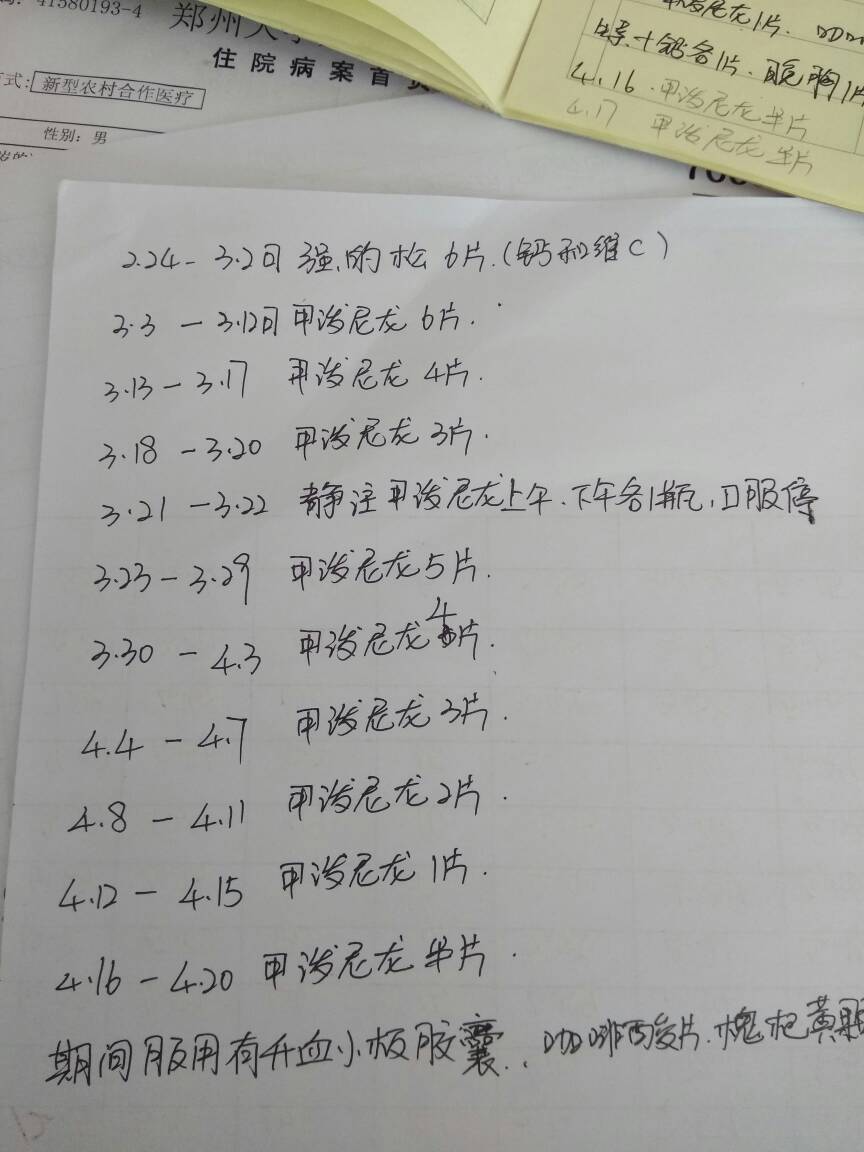 41580193-4
郑州大
住院病案首页
式: 新型农村合作医疗
性别: 男
尼龙1片.
各1片.
4.16.甲泼尼龙半片
4.17 甲泼尼龙半片
2.24-3.2日 强的松 6片.(钙和维C)
3.3 -3.12日 甲泼尼龙 6片.
3.13-3.17 甲泼尼龙 4片.
3.18 -3.20 甲泼尼龙 3片.
3.21 -3.22 静注甲泼尼龙上午.下午各1瓶,口服停
3.23-3.29 甲泼尼龙5片.
3.30 - 4.3 甲泼尼龙4片.
4.4 - 4.7 甲泼尼龙 3片.
4.8 - 4.11 甲泼尼龙2片.
4.12 - 4.15 甲泼尼龙 1片.
4.16-4.20 甲泼尼龙 半片.
期间服用有升血小板胶囊.咖啡酸片.槐杞黄颗